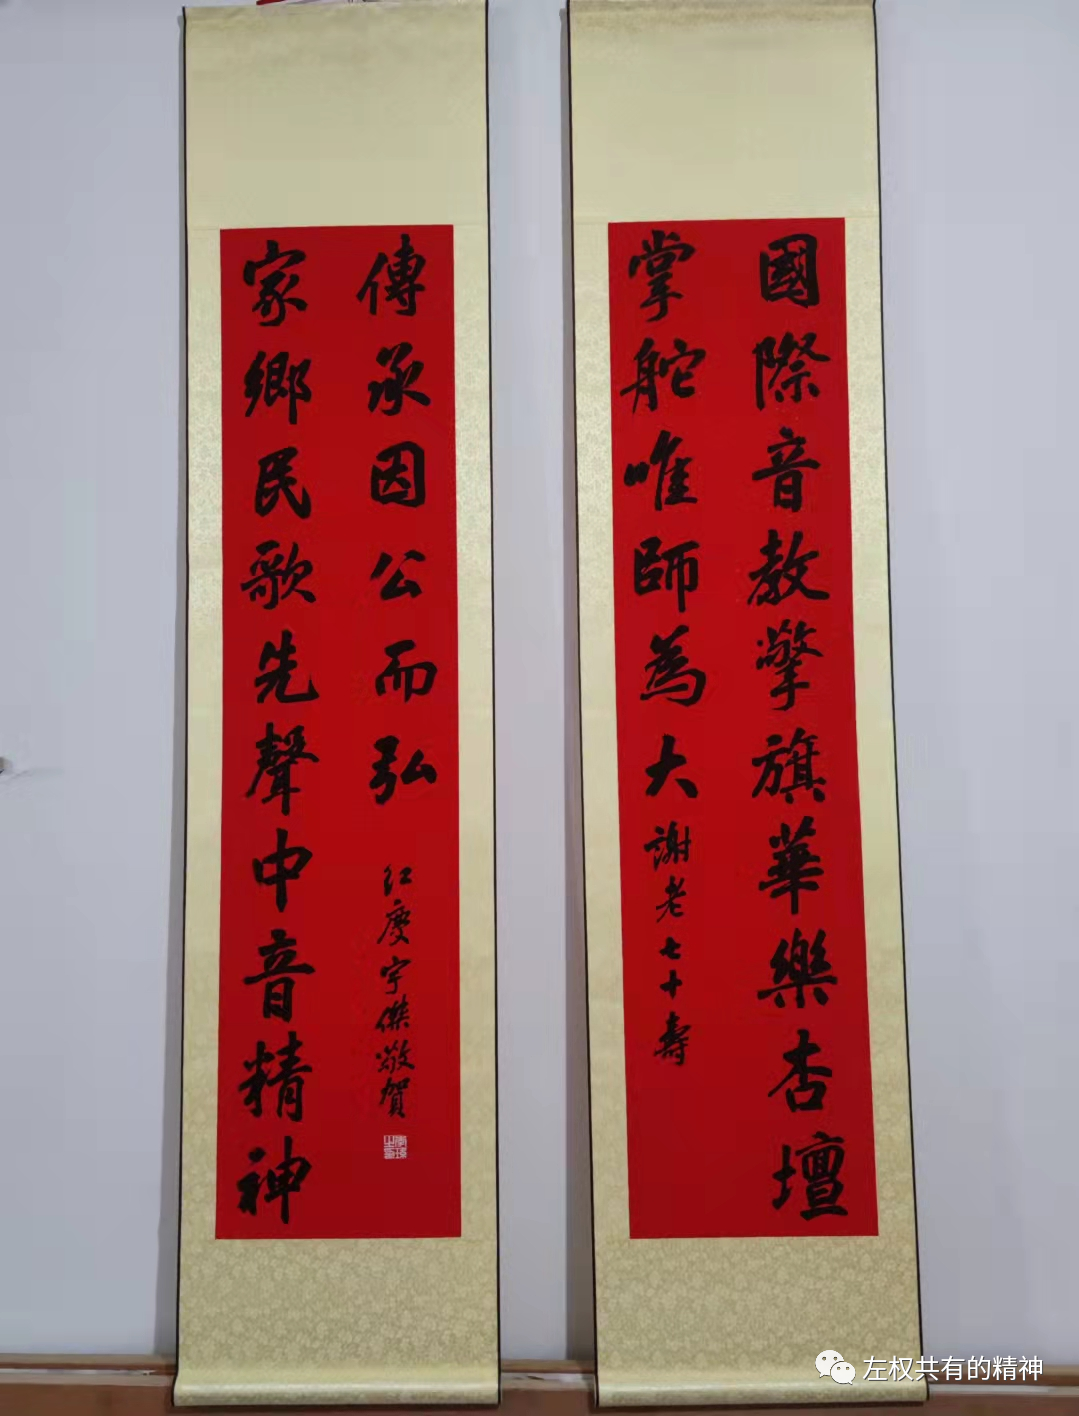 國際音教擎旗華樂杏壇
掌舵唯師為大
謝老七十壽
家鄉民歌先聲中音精神
傳承因公而弘
红慶宇傑敬賀
左权共有的精神